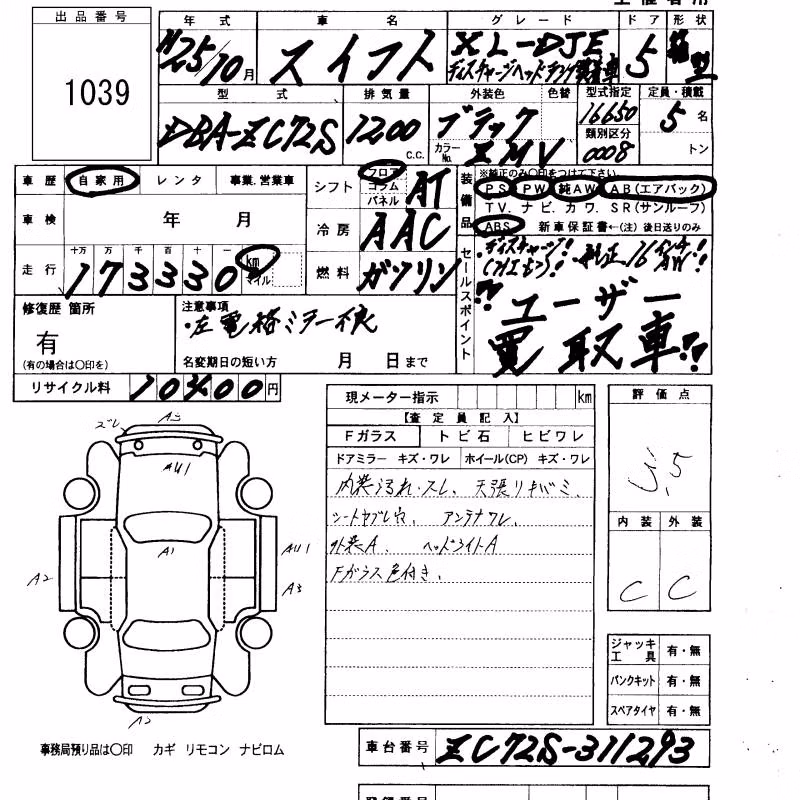 出品番号
1039
年式 車名 グレード ドア 形状
H25/10月 スイフト XL-DJE 5
ディスチャージヘッドランプ装着車
型式 排気量 外装色 色替 型式指定 定員・積載
DBA-ZC72S 1200 c.c. ブラック 16650 5名
カラーNo. ZMV 類別区分 0008 トン
車歴 自家用 レンタ 事業.営業車
シフト フロア コラム パネル AT
装備品 ※純正のみ〇印をつけて下さい.
PS PW 純AW AB(エアバック)
TV. ナビ. カワ. SR(サンルーフ)
ABS 新車保証書←(注)後日送りのみ
車検 年 月
冷房 AAC
走行 十万 万 千 百 十 一
173330 km マイル
燃料 ガソリン
セールスポイント
ディスチャージ!! 純正16インチAW!!
ユーザー
買取車!!
修復歴 箇所
有
(有の場合は〇印を)
注意事項
・左電格ミラー不良
名変期日の短い方 月 日まで
リサイクル料 円
現メーター指示 km
【査定員記入】
Fガラス トビ石 ヒビワレ
ドアミラー キズ・ワレ ホイール(CP) キズ・ワレ
内装汚れ・スレ、天張リキバミ、
シートヤブレ穴、アンテナワレ、
外装A、ヘッドライトA
Fガラス色付き、
評価点
3.5
内装 外装
C C
ズレ A3
AU1
A1
A2
AU1
A3
ジャッキ工具 有・無
パンクキット 有・無
スペアタイヤ 有・無
事務局預り品は〇印 カギ リモコン ナビロム
車台番号 ZC72S-311293